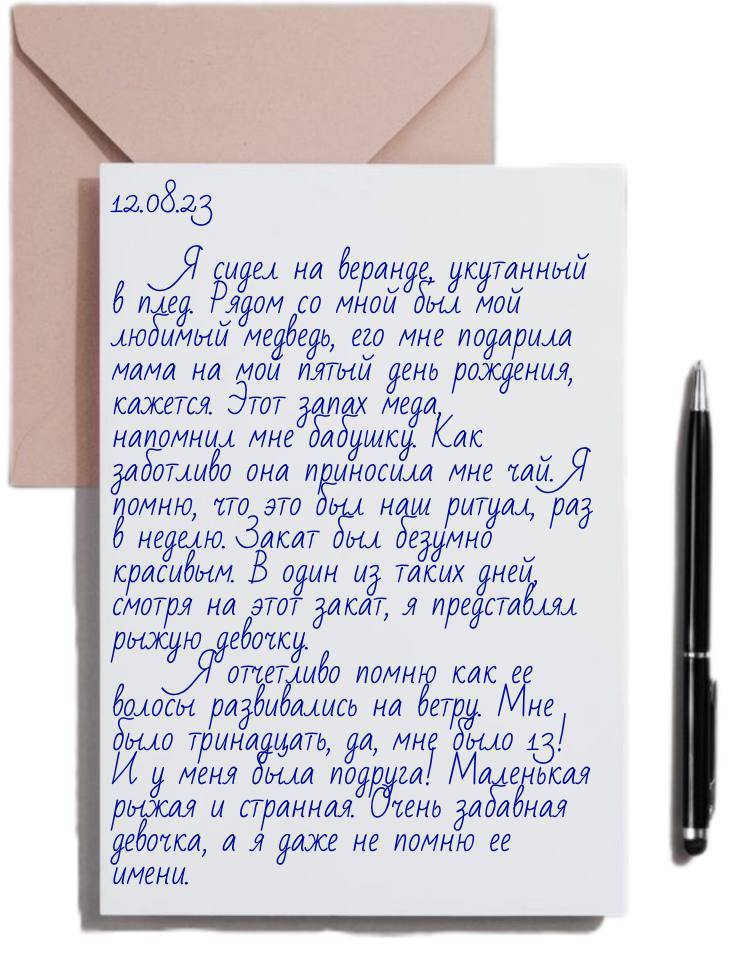 12.08.23
Я сидел на веранде, укутанный
в плед. Рядом со мной был мой
любимый медведь, его мне подарила
мама на мой пятый день рождения,
кажется. Этот запах меда,
напомнил мне бабушку. Как
заботливо она приносила мне чай. Я
помню, что это был наш ритуал, раз
в неделю. Закат был безумно
красивым. В один из таких дней,
смотря на этот закат, я представлял
рыжую девочку.
Я отчетливо помню как ее
волосы развивались на ветру. Мне
было тринадцать, да, мне было 13!
И у меня была подруга! Маленькая
рыжая и странная. Очень забавная
девочка, а я даже не помню ее
имени.